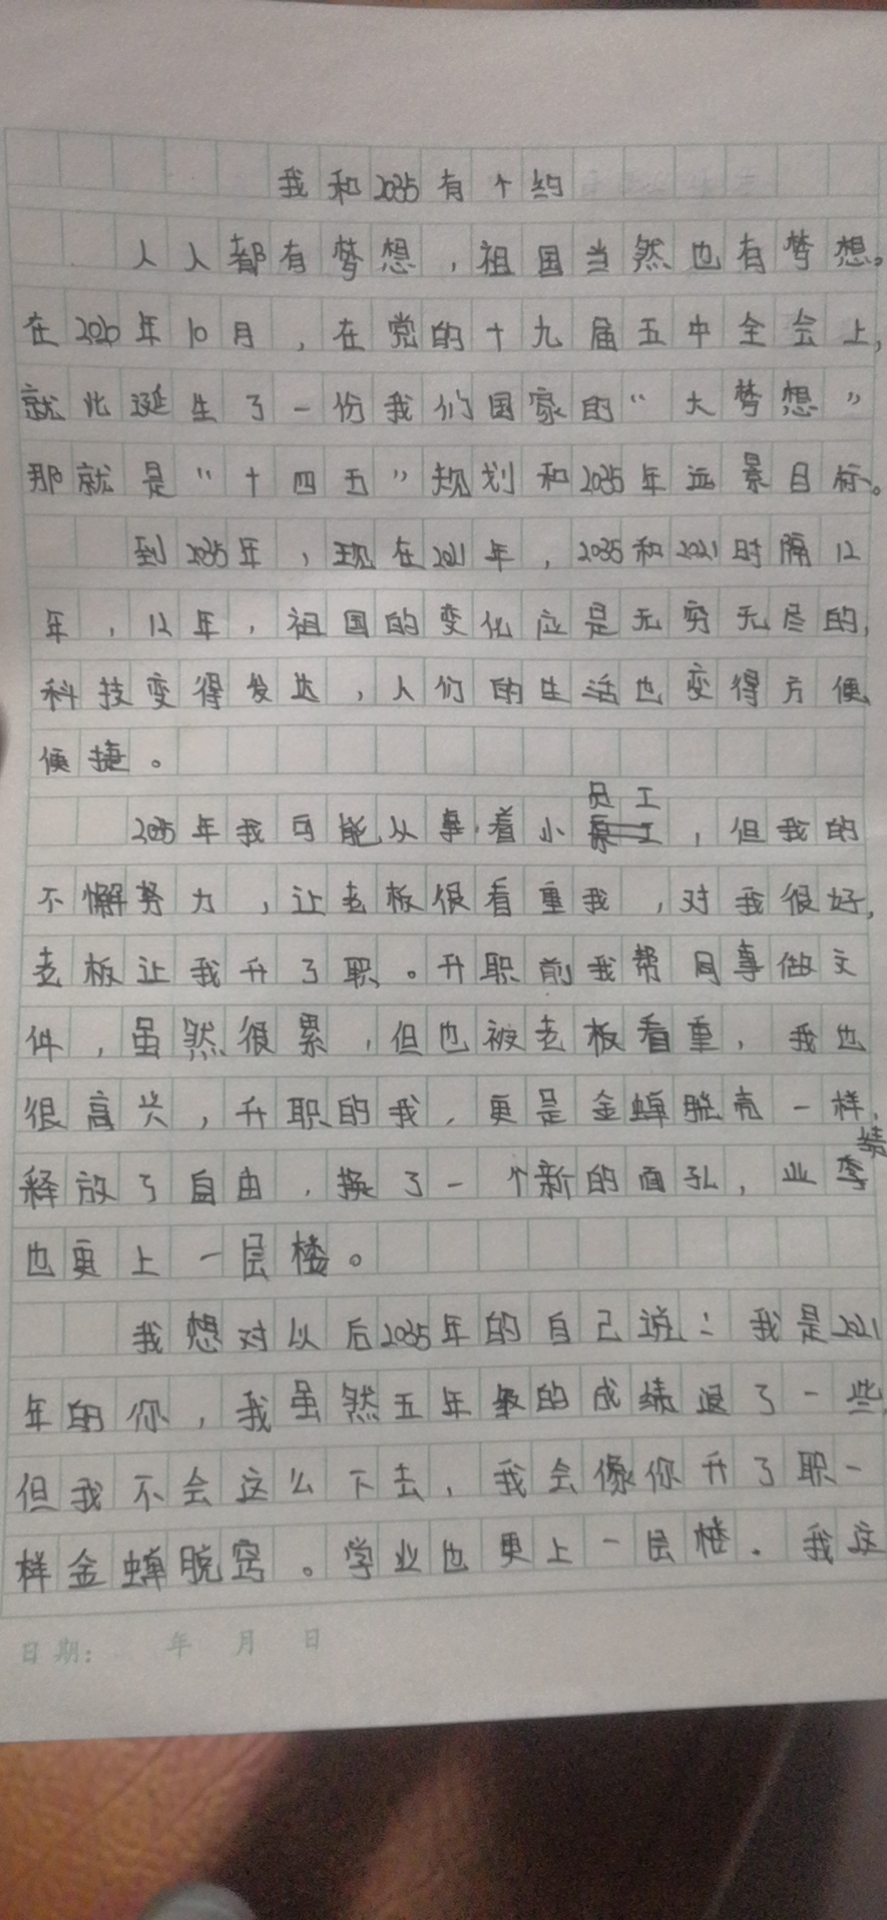 我和2035有个约
人人都有梦想，祖国当然也有梦想。
在2020年10月，在党的十九届五中全会上，
就此诞生了一份我们国家的“大梦想”
那就是“十四五”规划和2035年远景目标。
到2035年，现在2021年，2035和2021时隔12
年，12年，祖国的变化应是无穷无尽的，
科技变得发达，人们的生活也变得方便
便捷。
2035年我可能从事着小员工，但我的
不懈努力，让老板很看重我，对我很好，
老板让我升了职。升职前我帮同事做文
件，虽然很累，但也被老板看重，我也
很高兴，升职的我，更是金蝉脱壳一样，
释放了自由，换了一个新的面孔，业绩
也更上一层楼。
我想对以后2035年的自己说：我是2021
年的你，我虽然五年级的成绩退了一些，
但我不会这么下去，我会像你升了职一
样金蝉脱窍。学业也更上一层楼。我这
日期：年 月 日